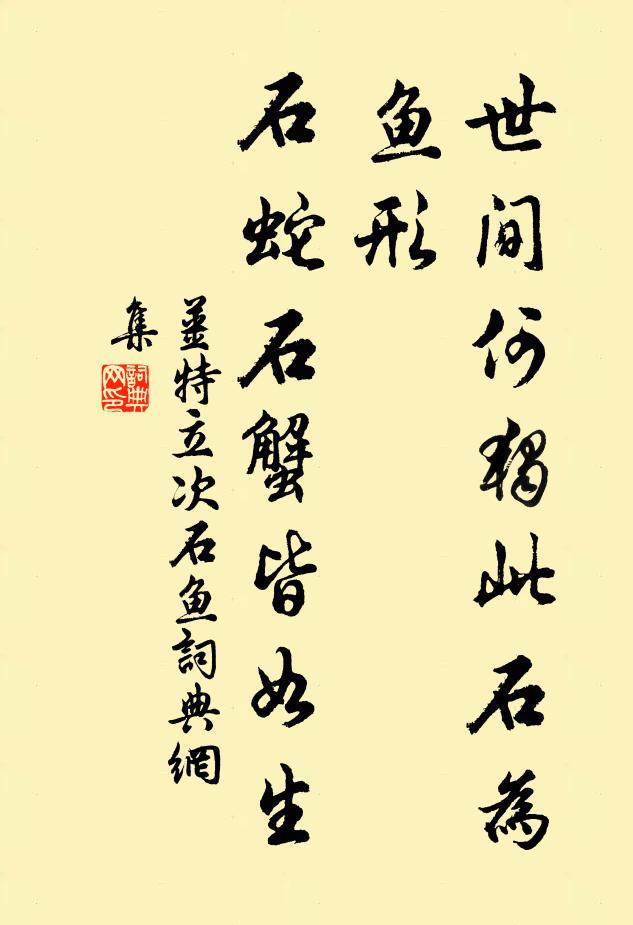 世间何独此石为
鱼形
石蛇石蟹皆如生
姜特立次石鱼詞典網
集
詞典
网印